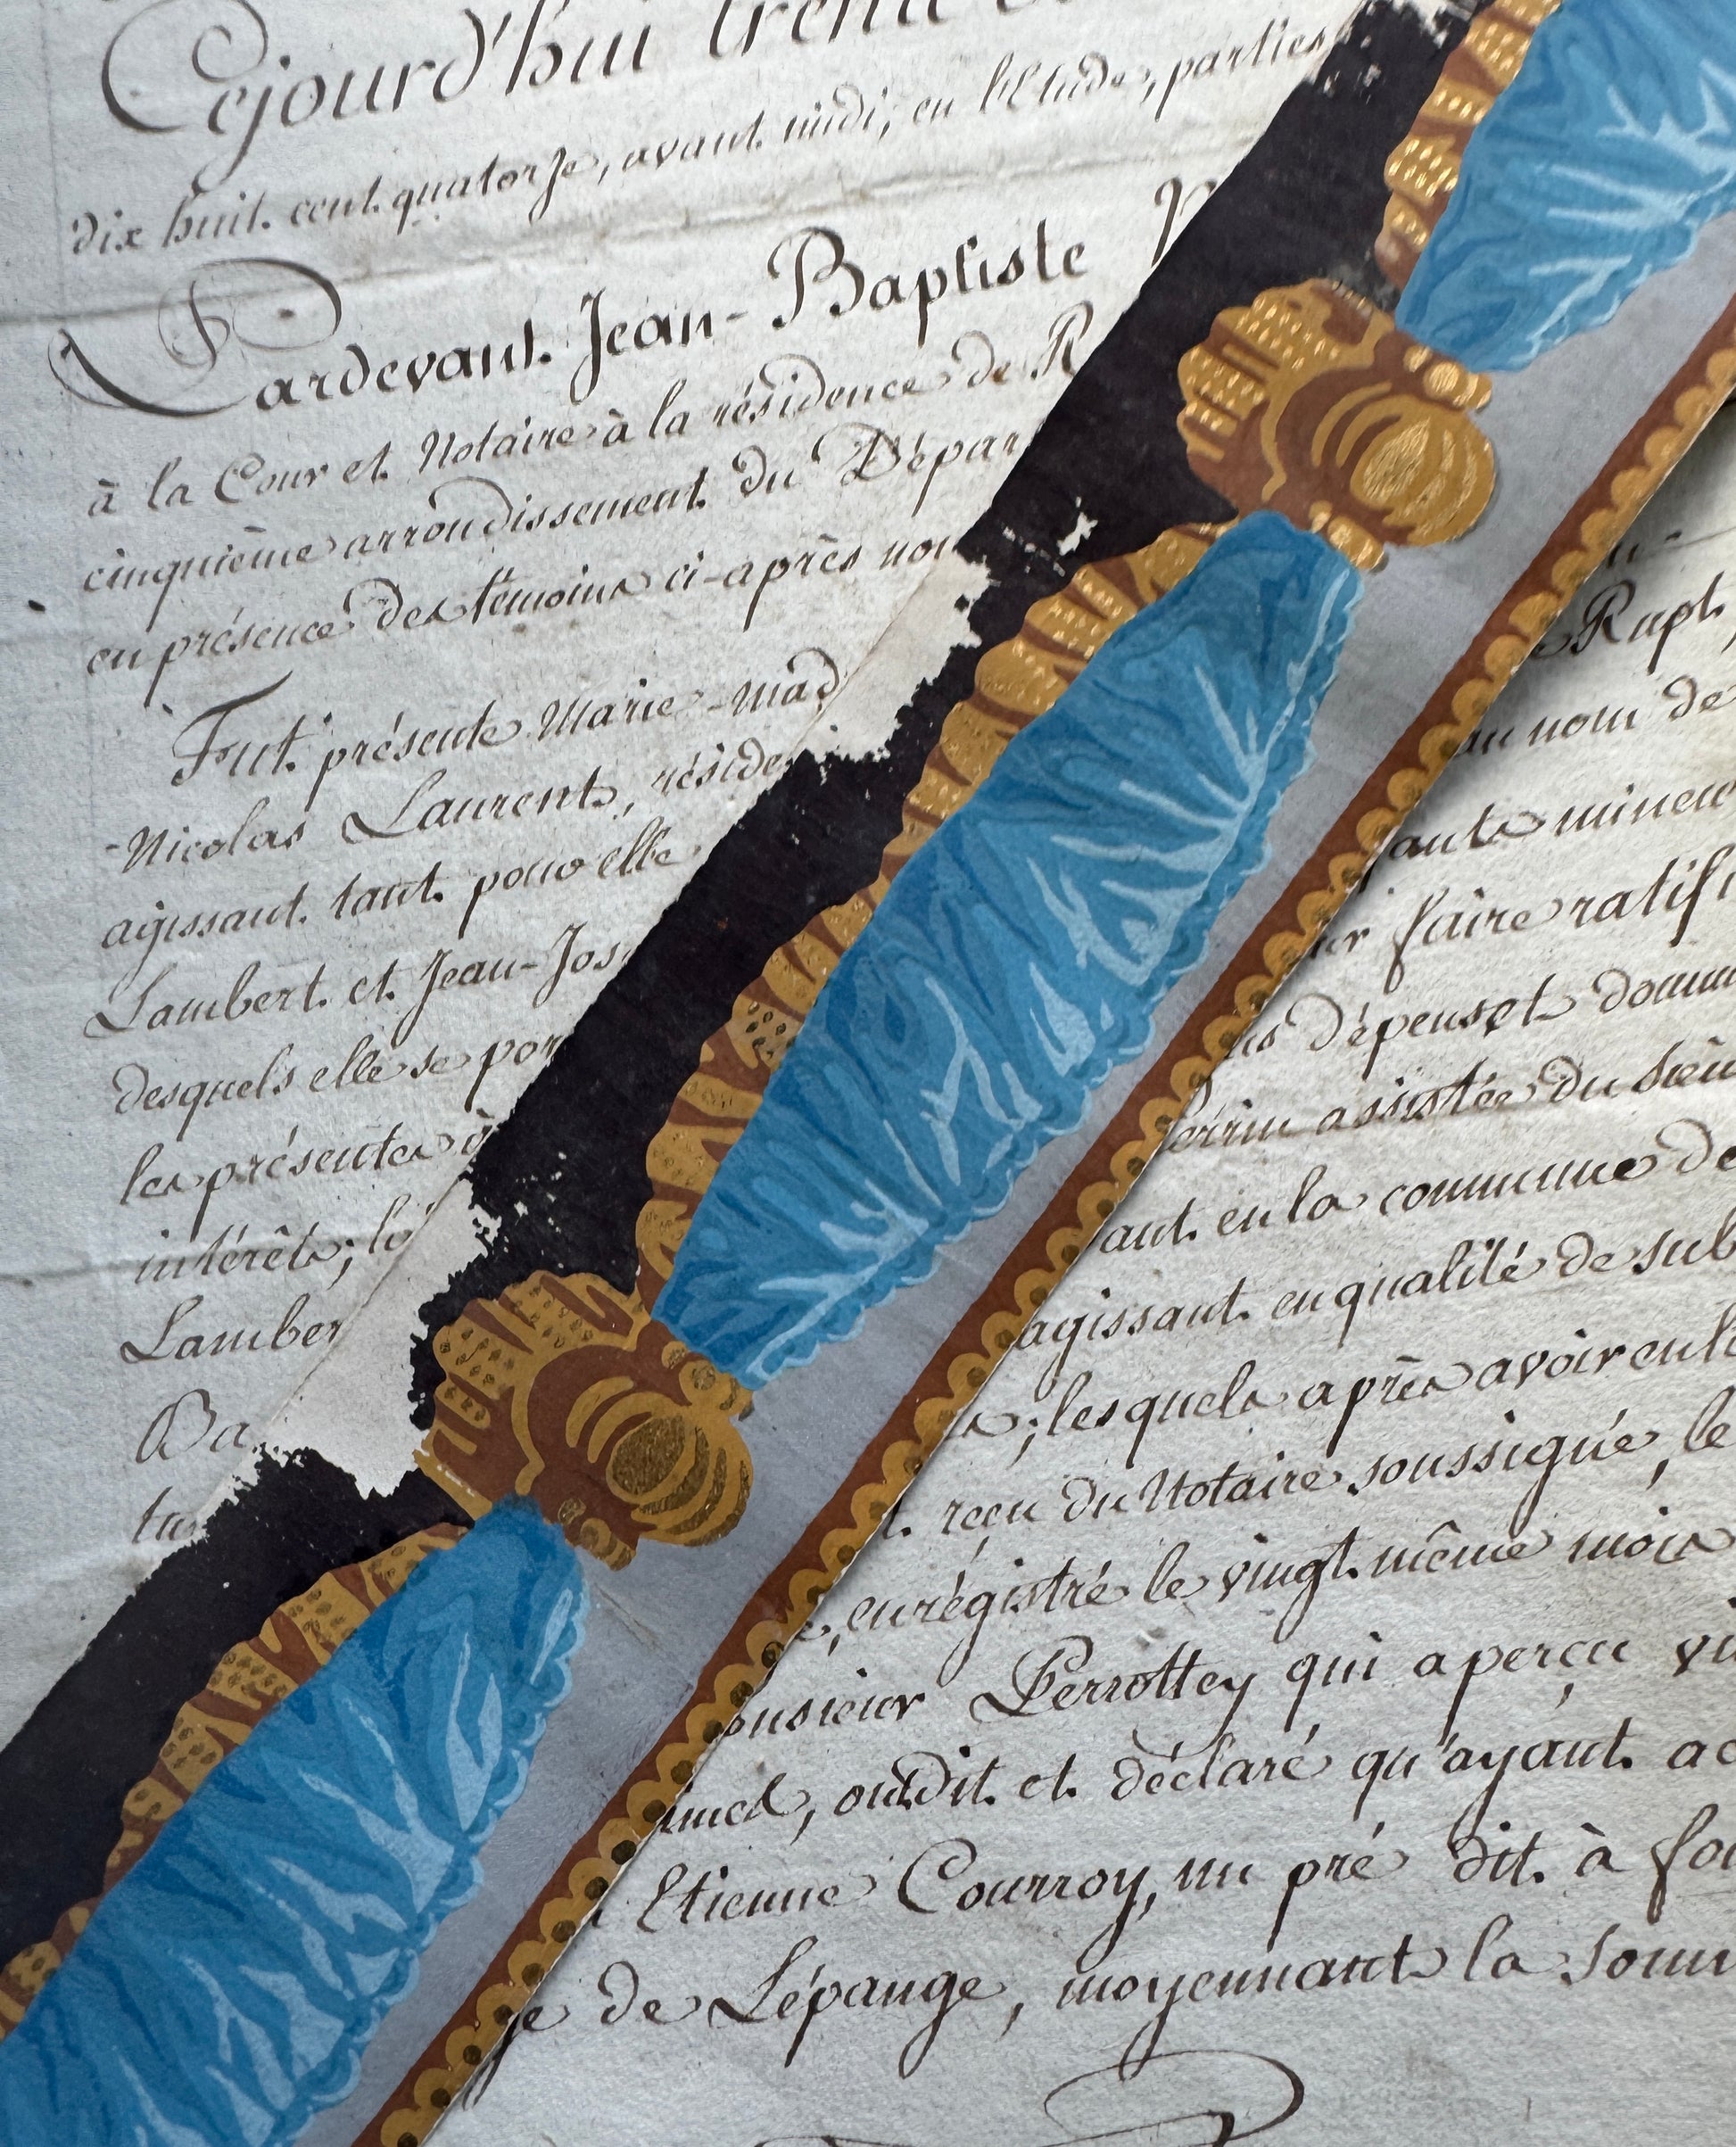 Cejourd'hui trent
dix huit cent quatorze, avant midi, en l'Etude, parties
Pardevant Jean-Baptiste
à la Cour et Notaire à la résidence de R
cinquième arrondissement du Dépar
en présence des témoins ci-après nom
Fut présente Marie-Mad
Nicolas Laurent, réside
agissant tant pour elle
Lambert et Jean-Jos
desquels elle se por
les présentes à
intérêts; lo
Lamber
Ba
tu
Rapt,
au nom de
ants mineu
er faire ratifi
us dépenset domm
errin assistée du sieu
ant en la commune de
agissant en qualité de sub
s; lesquels après avoir enl
t reçu du Notaire soussigné, le
e, enrégistré le vingt même mois
onsieur Perrottey qui aperçu
umel, ont dit et déclaré qu'ayant ac
Etienne Courroy, un pré dit à
ge de Lépange, moyennant la som